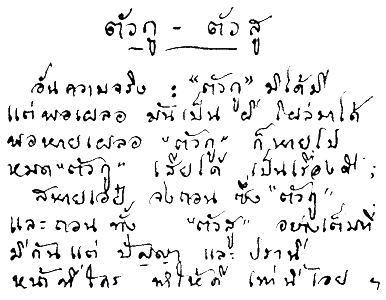 ตัวกู - ตัวสู
อันความจริง : "ตัวกู" มิได้มี
แต่พอเผลอ มันเป็น ผี โผล่มาได้
พอหายเผลอ "ตัวกู" ก็หายไป
หมด "ตัวกู" เสียได้ เป็นเรื่องดี ;
สหายเอ๋ย จงถอน ซึ่ง "ตัวกู"
และถอนทั้ง "ตัวสู" อย่างเต็มที่
มีกันแต่ ปัญญา และ ปรานี
หน้าที่ใคร ทำให้ดี เท่านี้เอย ฯ